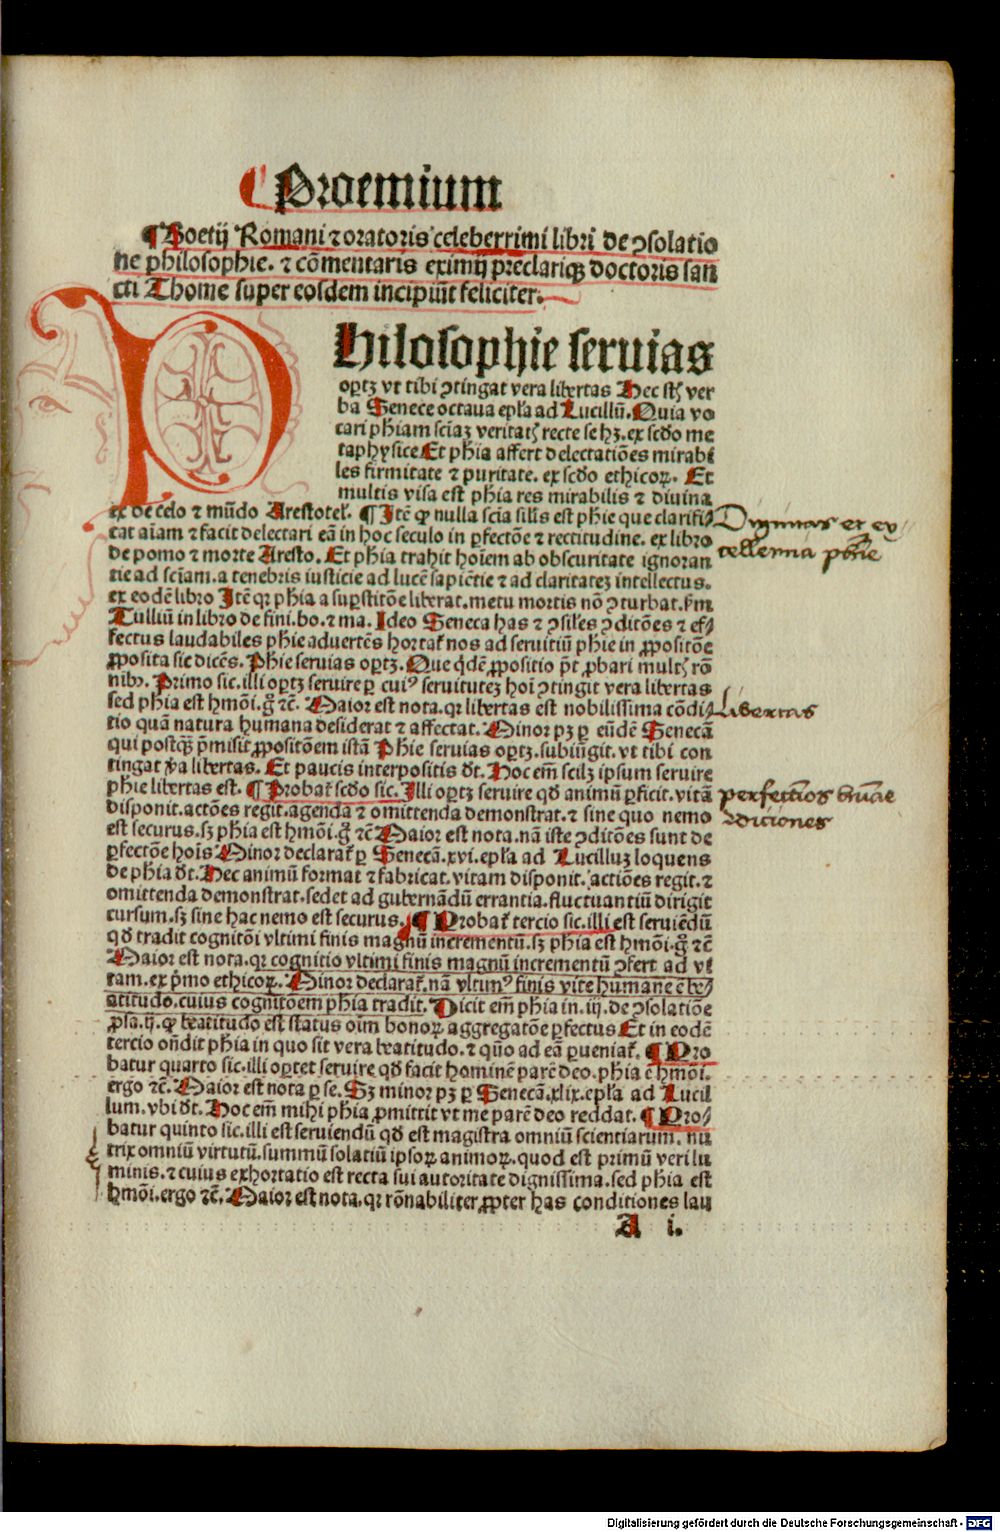 ¶ Proemium
¶ Boetij Romani ⁊ oratoris celeberrimi libri de ꝯsolatio
ne philosophie. ⁊ cōmentaris eximij preclariqꝫ doctoris san
cti Thome super eosdem incipiūt feliciter.
Philosophie seruias
oꝑtꝫ vt tibi ꝯtingat vera libertas Hec st̄ ver
ba Senece octaua epl'a ad Lucillū. Quia vo
cari phiam sciaꝫ veritat̄ recte se hꝫ. ex scd̄o me
taphysice Et phia affert delectatiōes mirabi
les firmitate ⁊ puritate. ex scd̄o ethicoꝝ. Et
multis visa est phia res mirabilis ⁊ diuina
ex de celo ⁊ mūdo Arestotel'. ¶ Itē ꝙ nulla scia silis est phie que clarifi⸗
cat aīam ⁊ facit delectari eā in hoc seculo in ꝑfectōe ⁊ rectitudine. ex libro
de pomo ⁊ morte Aresto. Et phia trahit hoīem ab obscuritate ignoran
tie ad sciam. a tenebris iusticie ad lucē sapiētie ⁊ ad claritateꝫ intellectus.
ex eodē libro Itē qꝛ phia a suꝑstitōe liberat. metu mortis nō ꝯturbat. ẜm
Tulliū in libro de fini. bo. ⁊ ma. Ideo Seneca has ⁊ ꝯsiles ꝯditōes ⁊ ef⸗
fectus laudabiles phie aduertēs hortat̄ nos ad seruitiū phie in ꝓpositōe
ꝓposita sic dicēs. Phie seruias oꝑtꝫ. Que qdē ꝓpositio pt̄ ꝓbari mult̄ rō
nibꝰ. Primo sic. illi oꝑtꝫ seruire ꝑ cuiꝰ seruituteꝫ hoī ꝯtingit vera libertas
sed phia est hmōi. g̊ ⁊c̄. Maior est nota. qꝛ libertas est nobilissima cōdi⸗
tio quā natura humana desiderat ⁊ affectat. Minor pꝫ ꝑ eūdē Senecā
qui postqꝫ p̄misit ꝓpositōem istā Phie seruias oꝑtꝫ. subiūgit. vt tibi con
tingat v̄a libertas. Et paucis interpositis dt̄. Hoc em̄ scilꝫ ipsum seruire
phie libertas est. ¶ Probat̄ scd̄o sic. Illi oꝑtꝫ seruire qd̄ animū ꝑficit. vitā
disponit. actōes regit. agenda ⁊ omittenda demonstrat. ⁊ sine quo nemo
est securus. sꝫ phia est hmōi. g̊ ⁊c̄ Maior est nota. nā iste ꝯditōes sunt de
ꝑfectōe hoīs Minor declarat̄ ꝑ Senecā. xvi. epl'a ad Lucilluꝫ loquens
de phia dt̄. Hec animū format ⁊ fabricat. vitam disponit. actiōes regit. ⁊
omittenda demonstrat. sedet ad gubernādū errantia. fluctuantiū dirigit
cursum. sꝫ sine hac nemo est securus. ¶ Probat̄ tercio sic. illi est seruiēdū
qd̄ tradit cognitōi vltimi finis magnū incrementū. sꝫ phia est hmōi. g̊ ⁊c̄
Maior est nota. qꝛ cognitio vltimi finis magnū incrementū ꝯfert ad vi
tam. ex p̄mo ethicoꝝ. Minor declarat̄. nā vltimꝰ finis vite humane ē be⸗
atitudo. cuius cognitōem phia tradit. Dicit em̄ phia in. iij. de ꝯsolatiōe
ꝓsa. ij. ꝙ beatitudo est status oīm bonoꝝ aggregatōe ꝑfectus Et in eodē
tercio ondit phia in quo sit vera beatitudo. ⁊ quō ad eā ꝑueniat̄. ¶ Pro
batur quarto sic. illi oꝑtet seruire qd̄ facit hominē parē deo. phia ē hmōi.
ergo ⁊c̄. Maior est nota ꝑ se. Sꝫ minor pꝫ ꝑ Senecā. xlix. epl'a ad Lucil
lum. vbi dt̄. Hoc em̄ mihi phia ꝓmittit vt me parē deo reddat. ¶ Pro⸗
batur quinto sic. illi est seruiendū qd̄ est magistra omniū scientiarum. nu
trix omniū virtutū. summū solatiū ipsoꝝ animoꝝ. quod est primū veri lu
minis. ⁊ cuius exhortatio est recta sui autoritate dignissima. sed phia est
hmōi. ergo ⁊c̄. Maior est nota. qꝛ rōnabiliter ꝓpter has conditiones lau
A i.
Dignitas et ex
cellentia phie
Libertas
perfectiōs hūane
ꝯdiciones
Digitalisierung gefördert durch die Deutsche Forschungsgemeinschaft - DFG